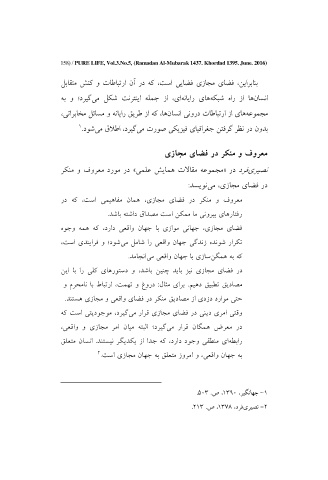 158) / PURE LIFE, Vol.3.No.5, (Ramadan Al-Mubarak 1437. Khordad 1395. June. 2016)
بنابراین، فضای مجازی فضایی است، که در آن ارتباطات و کنش متقابل
انسان‌ها از راه شبکه‌های رایانه‌ای، از جمله اینترنت شکل می‌گیرد؛ و به
مجموعه‌های از ارتباطات درونی انسان‌ها، که از طریق رایانه و مسائل مخابراتی،
بدون در نظر گرفتن جغرافیای فیزیکی صورت می‌گیرد، اطلاق می‌شود.۱
معروف و منکر در فضای مجازی
نصیری‌فرد در «مجموعه مقالات همایش علمی» در مورد معروف و منکر
در فضای مجازی، می‌نویسد:
معروف و منکر در فضای مجازی، همان مفاهیمی است، که در
رفتارهای بیرونی ما ممکن است مصداق داشته باشد.
فضای مجازی، جهانی موازی با جهان واقعی دارد، که همه وجوه
تکرار شونده زندگی جهان واقعی را شامل می‌شود؛ و فرایندی است،
که به همگن‌سازی با جهان واقعی می‌انجامد.
در فضای مجازی نیز باید چنین باشد، و دستورهای کلی را با این
مصادیق تطبیق دهیم. برای مثال: دروغ و تهمت، ارتباط با نامحرم و
حتی موارد دزدی از مصادیق منکر در فضای واقعی و مجازی هستند.
وقتی امری دینی در فضای مجازی قرار می‌گیرد، موجودیتی است که
در معرض همگان قرار می‌گیرد؛ البته میان امر مجازی و واقعی،
رابطه‌ای منطقی وجود دارد، که جدا از یکدیگر نیستند. انسان متعلق
به جهان واقعی، و امروز متعلق به جهان مجازی است.۲
۱- جهانگیر، ۱۳۹۰، ص. ۵۰۳.
۲- نصیری‌فرد، ۱۳۷۸، ص. ۲۱۳.